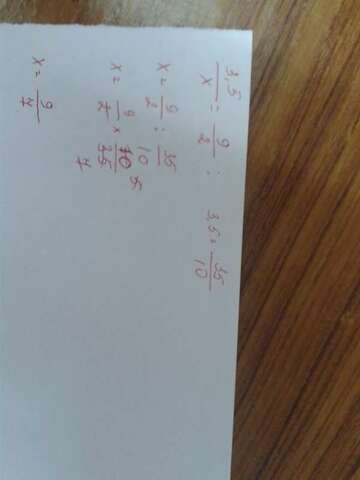 3,5/x = 9/2 ; 3,5 = 35/10
x = 9/2 : 35/10
x = 9/2 × 10/35 7
x = 9/7